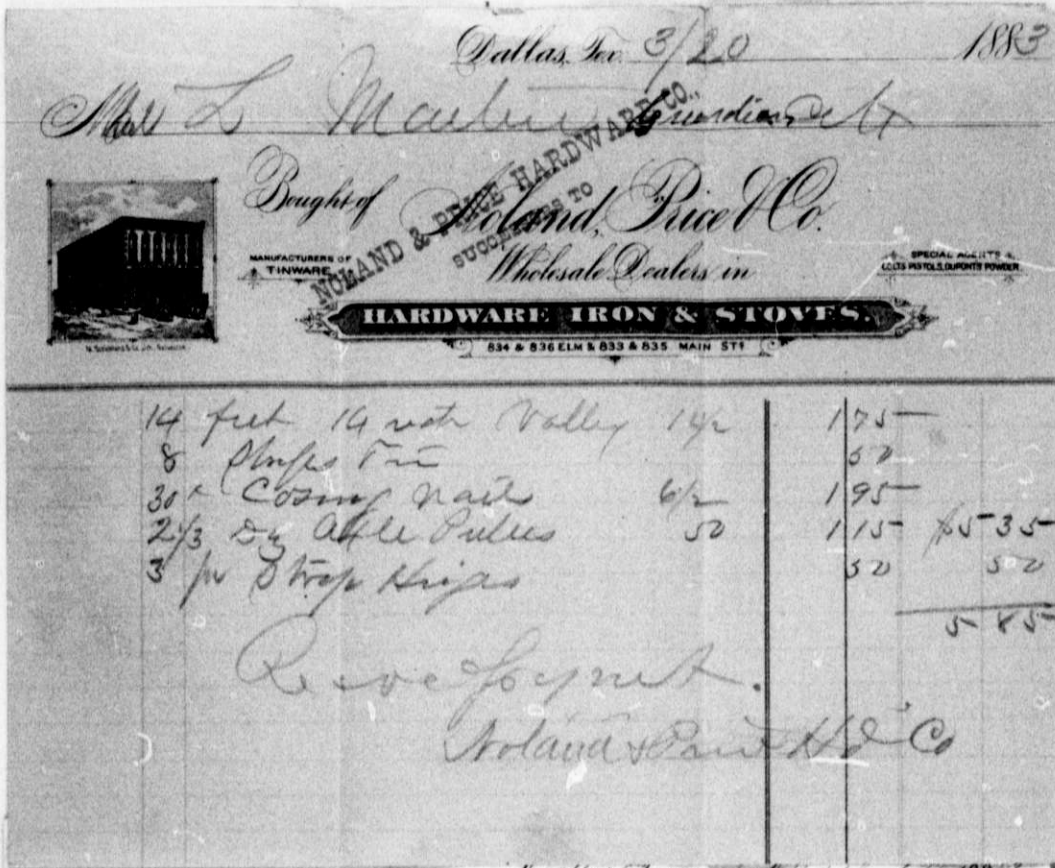 Dallas, Tex. 3/20 1883
L Martin Guardian
NOLAND & PRICE HARDWARE CO.,
SUCCESSORS TO
Bought of Noland, Price & Co.
MANUFACTURERS OF
TINWARE
Wholesale Dealers in
SPECIAL AGENTS
COLTS PISTOLS, DUPONTS POWDER
HARDWARE IRON & STOVES.
834 & 836 ELM & 833 & 835 MAIN STS
14 feet 14 inch Valley 12½ 1 75
8 Tin 50
30 # Casing nails 6½ 1 95
2⅓ Dz Axle Pulleys 50 1 15 $5 35
3 pr Strap Hinges 50 50
5 85
Noland & Price Hd Co